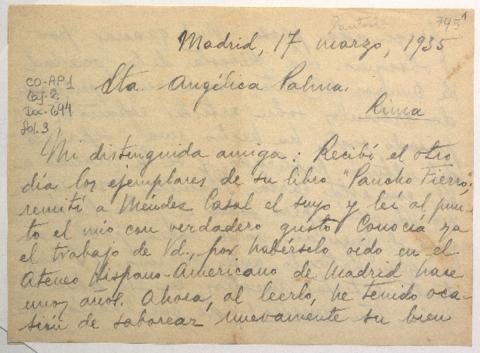 745
Madrid, 17 marzo, 1935
Sta Angélica Palma.
Lima
CO-AP1
Caj. 2
Doc. 694
fol. 3
Mi distinguida amiga: Recibí el otro
día los ejemplares de su libro "Pancho Fierro",
remití a Méndez Casal el suyo y leí al pun-
to el mío con verdadero gusto. Conocía ya
el trabajo de Vd., por habérselo oído en el
Ateneo Hispano-Americano de Madrid hace
unos años. Ahora, al leerlo, he tenido oca-
sión de saborear nuevamente su bien